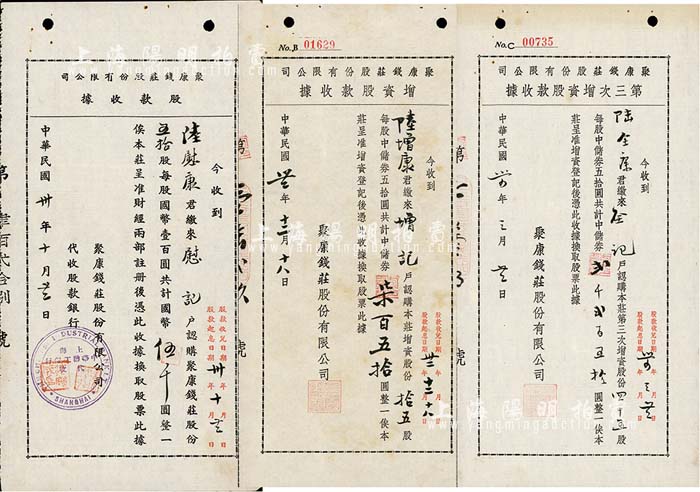 司公限有份股莊錢康聚
據收款股
今收到
陸慰康君繳來慰記戶認購聚康錢莊股份
五拾股每股國幣壹百圓共計國幣伍千圓整一
俟本莊呈准財經兩部註冊後憑此收據換取股票此據
股款收足日期 年 月 日
股款起息日期 年 月 日
聚康錢莊股份有限公司
代收股款銀行
中華民國卅年十月 日
SHANGHAI
No. B 01629
司公限有份股莊錢康聚
據收款股資增
今收到
陸增康君繳來增記戶認購本莊增資股份拾五股
每股中儲券五拾圓共計中儲券柒百五拾圓整一俟本
莊呈准增資登記後憑此收據換取股票此據
股款收足日期 年 月 日
股款起息日期 年 月 日
聚康錢莊股份有限公司
中華民國 年十二月十八日
No. C 00735
司公限有份股莊錢康聚
據收款股資增次三第
今收到
陆全康君繳來全記戶認購本莊第三次增資股份四十五股
每股中儲券五拾圓共計中儲券貳千貳百五拾圓整一俟本
莊呈准增資登記後憑此收據換取股票此據
股款收足日期 年 月 日
股款起息日期 年 月 日
聚康錢莊股份有限公司
中華民國 年三月 日
上海陽明拍賣
www.yangmingauction.com